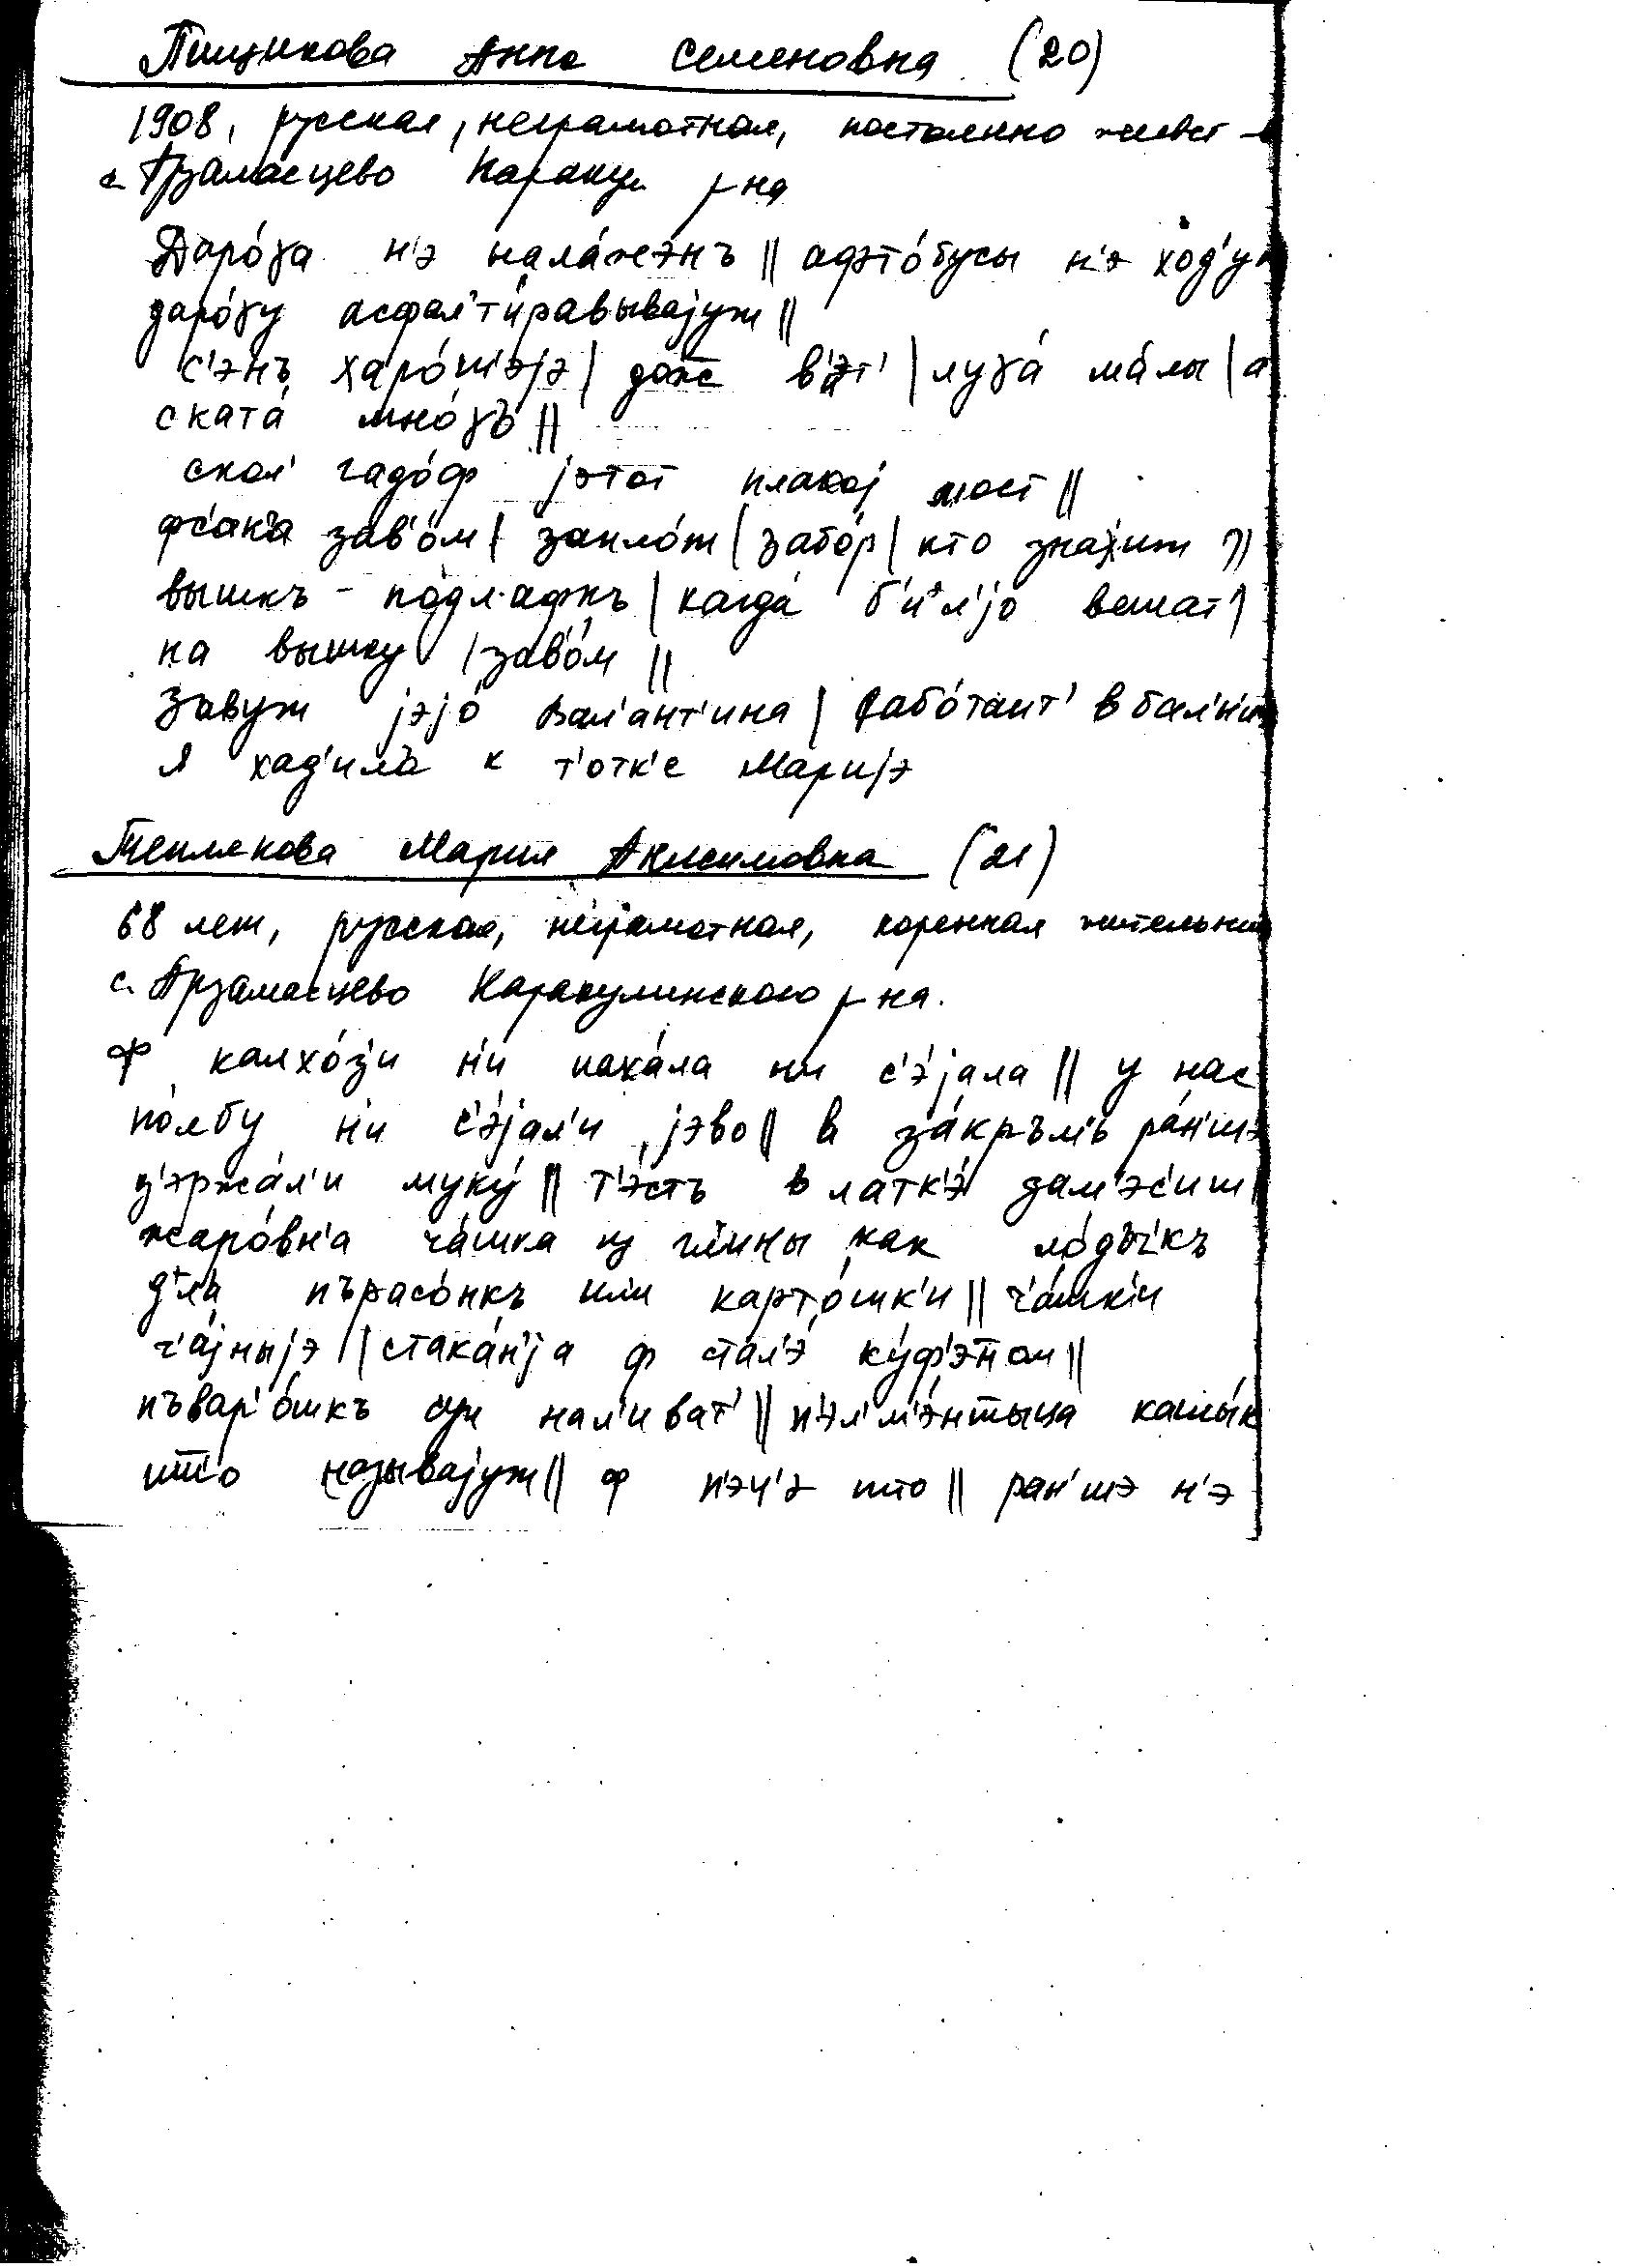 Пищикова Анна Семеновна (20)
1908, русская, неграмотная, постоянно живет в
с. Арзамасцево Каракул. р-на
Даро́γа н'э нала́жэнъ || афто́бусы н'э ход'ут
даро́γу асфал'ти́равывajут ||
с'энъ харо́шэjэ | луγа́ ма́лы | а
ската́ мно́γъ ||
скол' гадо́ф jэтот плахоj мост ||
фс'ака зав'о́м | запло́т | забо́р | кто знаjит ||
вышкъ - подл'афкъ | когда́ б'ил'jо вешат' |
на вышку | зав'о́м ||
завут jэjо́ Вал'ант'ина | рабо́таит' в бал'н'и
я хад'ила к т'отк'е Мариjэ
Теплякова Мария Анисимовна (21)
68 лет, русская, неграмотная, коренная жительница
с. Арзамасцево Каракулинского р-на.
Ф калхо́з'и н'и паха́ла ни с'э́jала || у нас
по́лбу н'и с'э́jал'и jэво || в за́кръм'ь ра́н'шэ
д'эржа́л'и муку́ || т'э́стъ в латк'э́ дам'э́с'иш ||
жаро́вн'а ча́шка из гли́ны как ло́дъч'къ
д'л'а пърас'о́нкъ или карто́шк'и || ч'а́шк'и
ч'а́jныjэ || стака́н'jа ф стал'э́ ку́ф'этном ||
пъвар'о́шкъ наливат' || п'эл'м'э́нтыца
што называjут || ф п'эч'э што || ран'шэ н'э